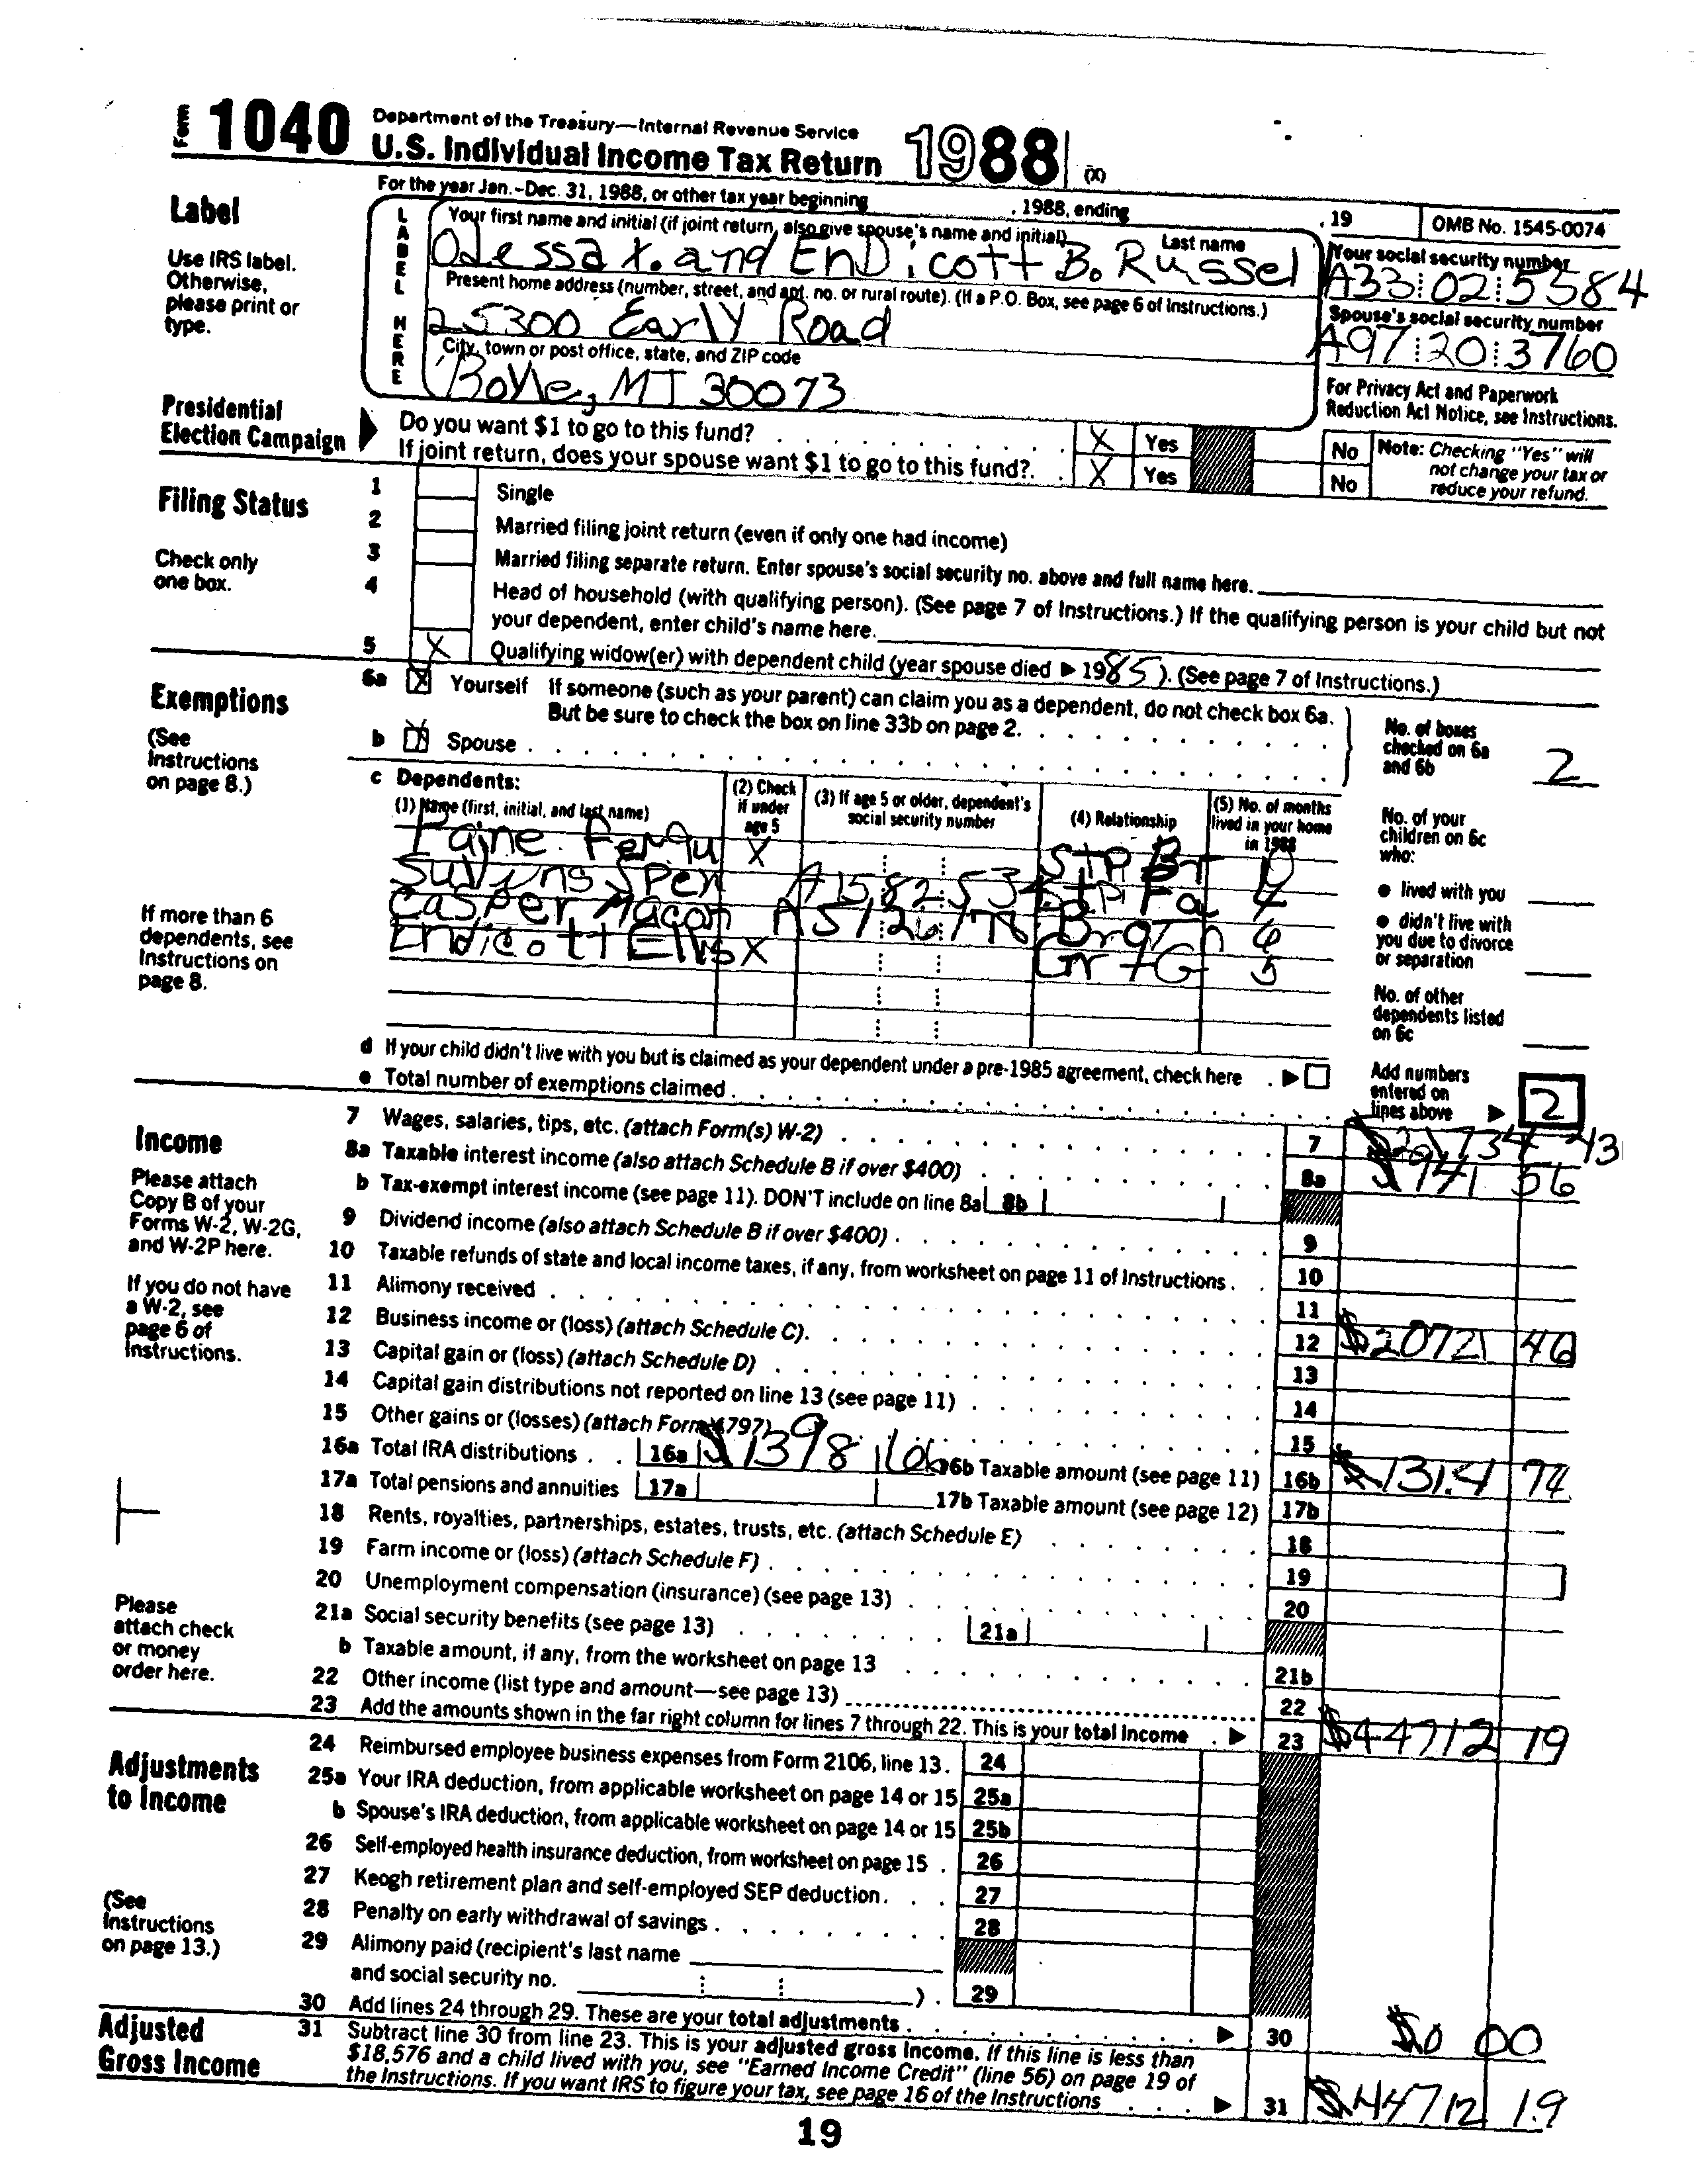 Form 1040 Department of the Treasury—Internal Revenue Service
U.S. Individual Income Tax Return 1988 (X)
For the year Jan.–Dec. 31, 1988, or other tax year beginning , 1988, ending , 19 OMB No. 1545-0074
Label
Use IRS label. Otherwise, please print or type.
LABEL HERE
Your first name and initial (if joint return, also give spouse's name and initial) Last name
Odessa X. and Endicott B. Russel
Your social security number
A33 02 5584
Present home address (number, street, and apt. no. or rural route). (If a P.O. Box, see page 6 of Instructions.)
25300 Early Road
Spouse's social security number
A97 20 3760
City, town or post office, state, and ZIP code
MT 30073
For Privacy Act and Paperwork Reduction Act Notice, see Instructions.
Presidential Election Campaign
Do you want $1 to go to this fund? X Yes No
If joint return, does your spouse want $1 to go to this fund? X Yes No
Note: Checking "Yes" will not change your tax or reduce your refund.
Filing Status
Check only one box.
1 Single
2 Married filing joint return (even if only one had income)
3 Married filing separate return. Enter spouse's social security no. above and full name here.
4 Head of household (with qualifying person). (See page 7 of Instructions.) If the qualifying person is your child but not
your dependent, enter child's name here.
5 X Qualifying widow(er) with dependent child (year spouse died ▶ 1985 ). (See page 7 of Instructions.)
Exemptions
(See Instructions on page 8.)
6a X Yourself If someone (such as your parent) can claim you as a dependent, do not check box 6a.
But be sure to check the box on line 33b on page 2.
b X Spouse
No. of boxes checked on 6a and 6b 2
c Dependents:
(1) Name (first, initial, and last name) (2) Check if under age 5 (3) If age 5 or older, dependent's social security number (4) Relationship (5) No. of months lived in your home in 1988
Paine Fergu X
Spen Fa
Casper Macon A51 26 178 6
Endicott Ellis X 5
If more than 6 dependents, see Instructions on page 8.
No. of your children on 6c who:
● lived with you
● didn't live with you due to divorce or separation
No. of other dependents listed on 6c
d If your child didn't live with you but is claimed as your dependent under a pre-1985 agreement, check here ▶
e Total number of exemptions claimed
Add numbers entered on lines above ▶ 2
Income
Please attach Copy B of your Forms W-2, W-2G, and W-2P here.
If you do not have a W-2, see page 6 of Instructions.
Please attach check or money order here.
7 Wages, salaries, tips, etc. (attach Form(s) W-2) 7 $21734 43
8a Taxable interest income (also attach Schedule B if over $400) 8a $941 56
b Tax-exempt interest income (see page 11). DON'T include on line 8a 8b
9 Dividend income (also attach Schedule B if over $400) 9
10 Taxable refunds of state and local income taxes, if any, from worksheet on page 11 of Instructions 10
11 Alimony received 11
12 Business income or (loss) (attach Schedule C) 12 $20721 46
13 Capital gain or (loss) (attach Schedule D) 13
14 Capital gain distributions not reported on line 13 (see page 11) 14
15 Other gains or (losses) (attach Form 4797) 15
16a Total IRA distributions 16a $1398 16b Taxable amount (see page 11) 16b $1314 74
17a Total pensions and annuities 17a 17b Taxable amount (see page 12) 17b
18 Rents, royalties, partnerships, estates, trusts, etc. (attach Schedule E) 18
19 Farm income or (loss) (attach Schedule F) 19
20 Unemployment compensation (insurance) (see page 13) 20
21a Social security benefits (see page 13) 21a
b Taxable amount, if any, from the worksheet on page 13 21b
22 Other income (list type and amount—see page 13) 22
23 Add the amounts shown in the far right column for lines 7 through 22. This is your total income ▶ 23 $44712 19
Adjustments to Income
(See Instructions on page 13.)
24 Reimbursed employee business expenses from Form 2106, line 13. 24
25a Your IRA deduction, from applicable worksheet on page 14 or 15 25a
b Spouse's IRA deduction, from applicable worksheet on page 14 or 15 25b
26 Self-employed health insurance deduction, from worksheet on page 15 26
27 Keogh retirement plan and self-employed SEP deduction 27
28 Penalty on early withdrawal of savings 28
29 Alimony paid (recipient's last name
and social security no. ) 29
30 Add lines 24 through 29. These are your total adjustments ▶ 30 $0 00
Adjusted Gross Income
31 Subtract line 30 from line 23. This is your adjusted gross income. If this line is less than
$18,576 and a child lived with you, see "Earned Income Credit" (line 56) on page 19 of
the Instructions. If you want IRS to figure your tax, see page 16 of the Instructions ▶ 31 $44712 19
19